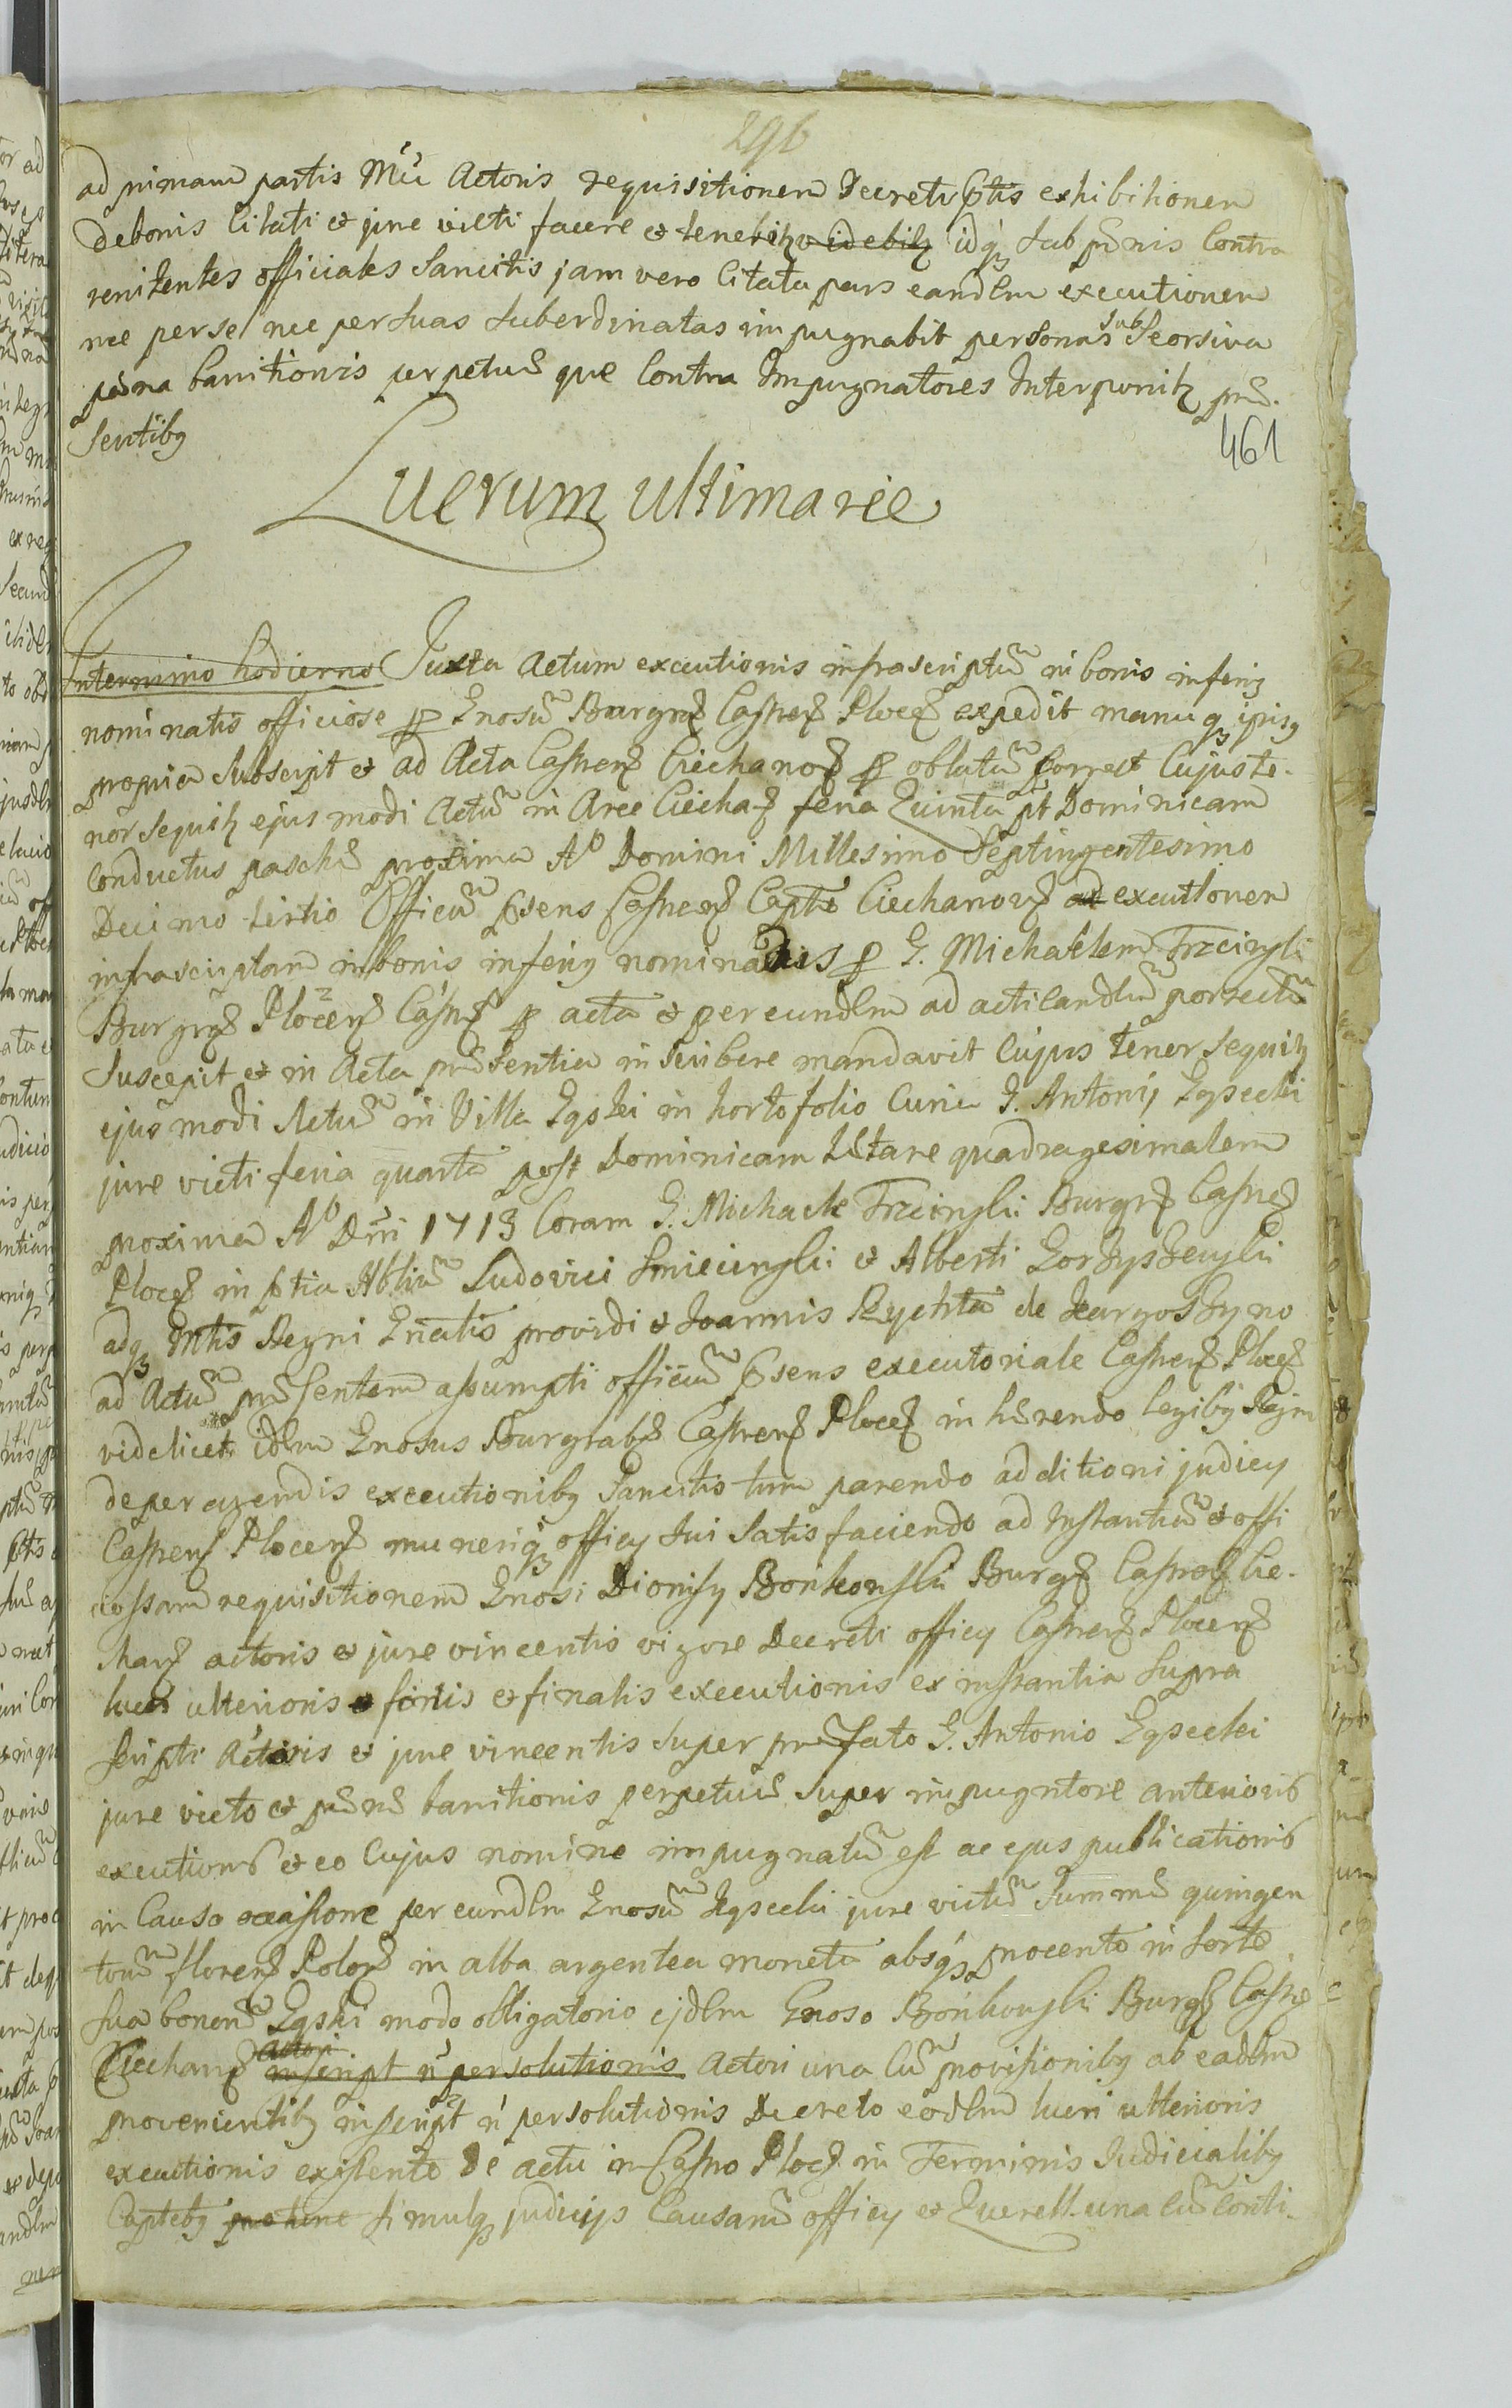 296
ad primam partis Mu Actoris requisitionem Decreti Pntis exhibitionem
debonis Citati et jure victi facere et tenebitz videbitz idq3 sub pœnis Contra
renitentes officiales Sancitis jam vero Citata pars eandem executionem
nec perse nec per suas suberdinatas impugnabit personas sub Seorsiva
pœna banitionis perpetuæ que Contra Impugnatores Interponitz præ-
sentibz
461
Lucrum ultimarie
In termino hodierno Juxta Actum executionis infrascriptu in bonis inferiz
nominatis officiose p Gnosu Burgra Castren Plocen expedit manuq3 ipisz
propria Subscript et ad Acta Castren Ciechanov p oblatu porrect Cujus te-
nor sequitz ejusmodi Actu in Arce Ciecha feria Quinta pt Dominicam
Conductus paschæ proxima Ao Domini Millesimo Septingentesimo
Decimo tertio Officiu Psens Castren Captle Ciechanov ad executionem
infrascriptam in bonis inferiz nominatis p G. Michaelem Trzcinski
Burgra Plocen Castr p acta et per eundem ad acticandum porrectu
Suscepit et in Acta præsentia inscribere mandavit Cujus tenor sequitz
ejusmodi Actu in Villa Egski in horto folio Curia G. Antonij Egsecki
jure victi feria quarta post Dominicam Lætare quadragesimalem
proxima Ao Dni 1713 Coram G. Michaele Trzcinski Burgr Castren
Plocen in ptia Nbliu Ludovici Smiecinski et Alberti Gorzyszewski
adq3 Mtis Regni Gnalis providi et Joannis Rychta de Kargoszyno
ad Actu præsentem assumpti officiu Psens executoriale Castren Plocen
videlicet idem Gnosus Burgrabs Castren Plocen in hærendo legibz Regni
deperagendis executionibz Sancitis tum parendo additioni judicy
Castren Plocen muneriq3 officy sui Satisfaciendo ad Instantiu et offi
ciosam requisitionem Gnosi Dionisy Bonkowski Burg Castren Cie-
chan actoris et jure vincentis vigore Decreti officy Castren Plocen
lucri ulterioris et fortis et finalis executionis ex instantia Supra
scripti Actoris et jure vincentis super præfato G. Antonio Egsecki
jure victo et pœnæ banitionis perpetuæ super impugntore anterioris
executionis et eo Cujus nomine impugnatu est ac ejus publicationis
in Causa occasione per eundem Gnosu Egsecki jure victu Summæ quingen
toru floren Polon in alba argentea moneta absq3 procento in sorte
sua bonoru Egski modo obligatorio ejdem Gnoso Bonkowski Burg Castre
Ciechan actori inscript n persolutionis Actori una Cu provisionibz ab eadem
provenientibz inscript n persolutionis Decreto eodem lucri ulterioris
executionis existente De actu in Castro Ploc in Terminis Judicialibz
Captlebz pro tunc simulq3 judicijs Causaru officy et Querell. una Cu Conti-